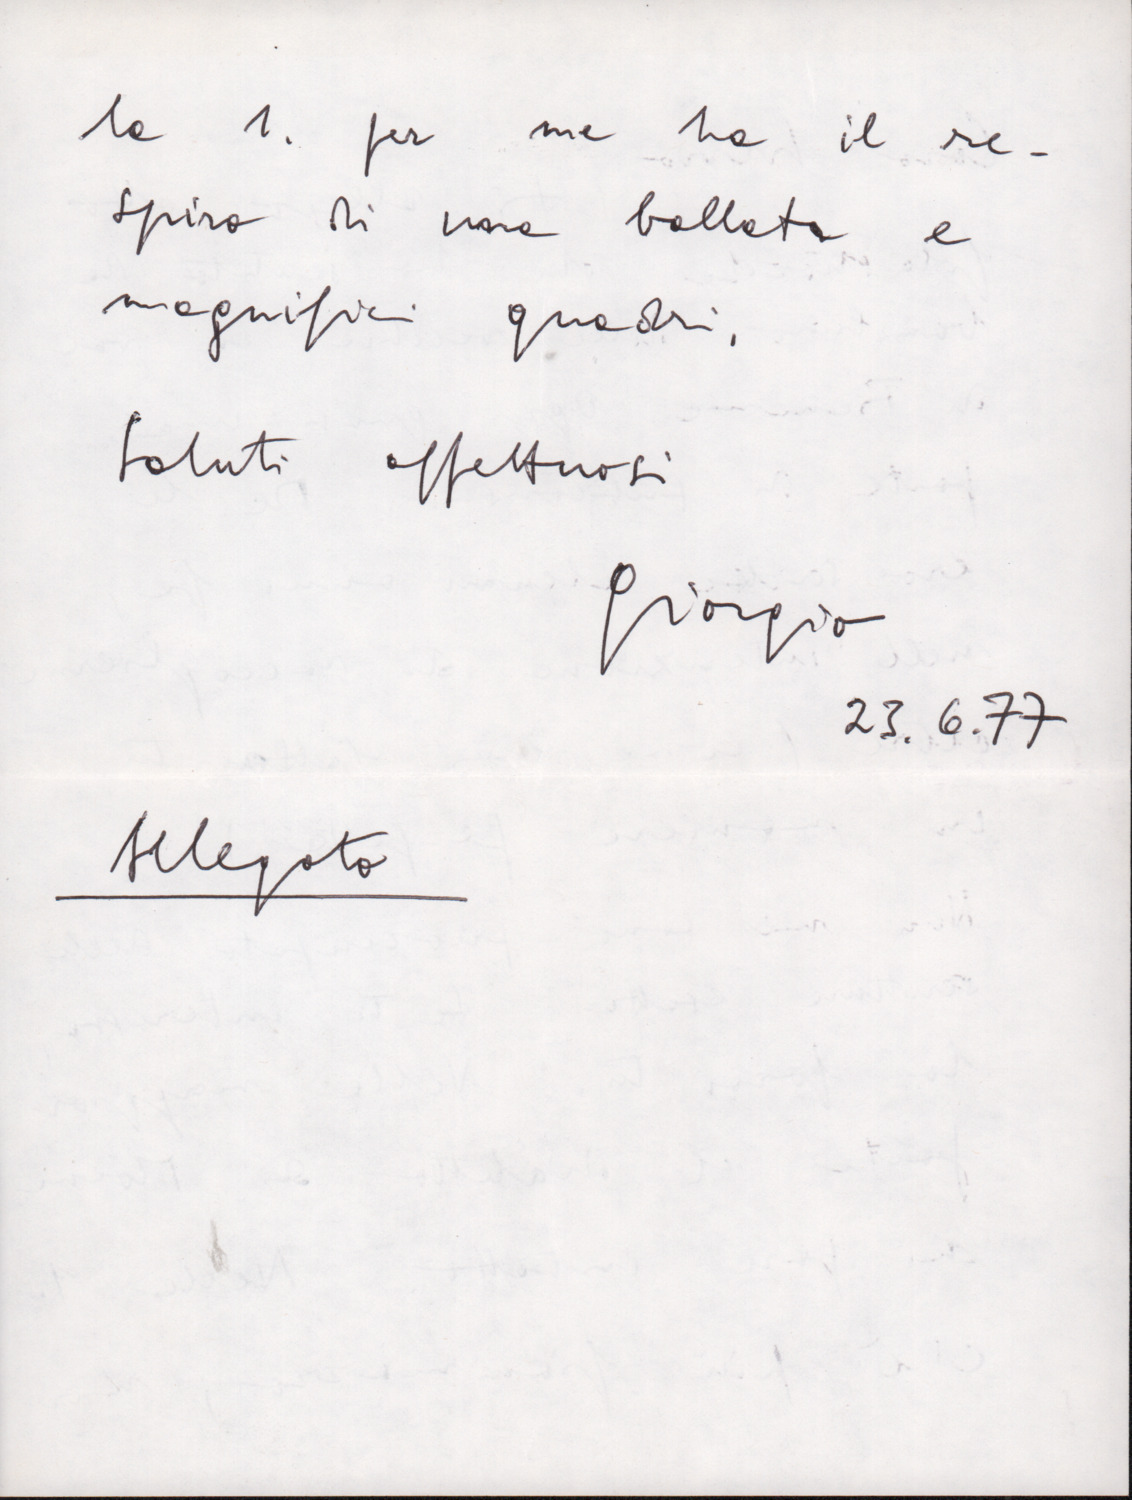 la 1. per me ha il re-
spiro di una ballata e
magnifici quadri.
Saluti affettuosi
Giorgio
23.6.77
Allegato